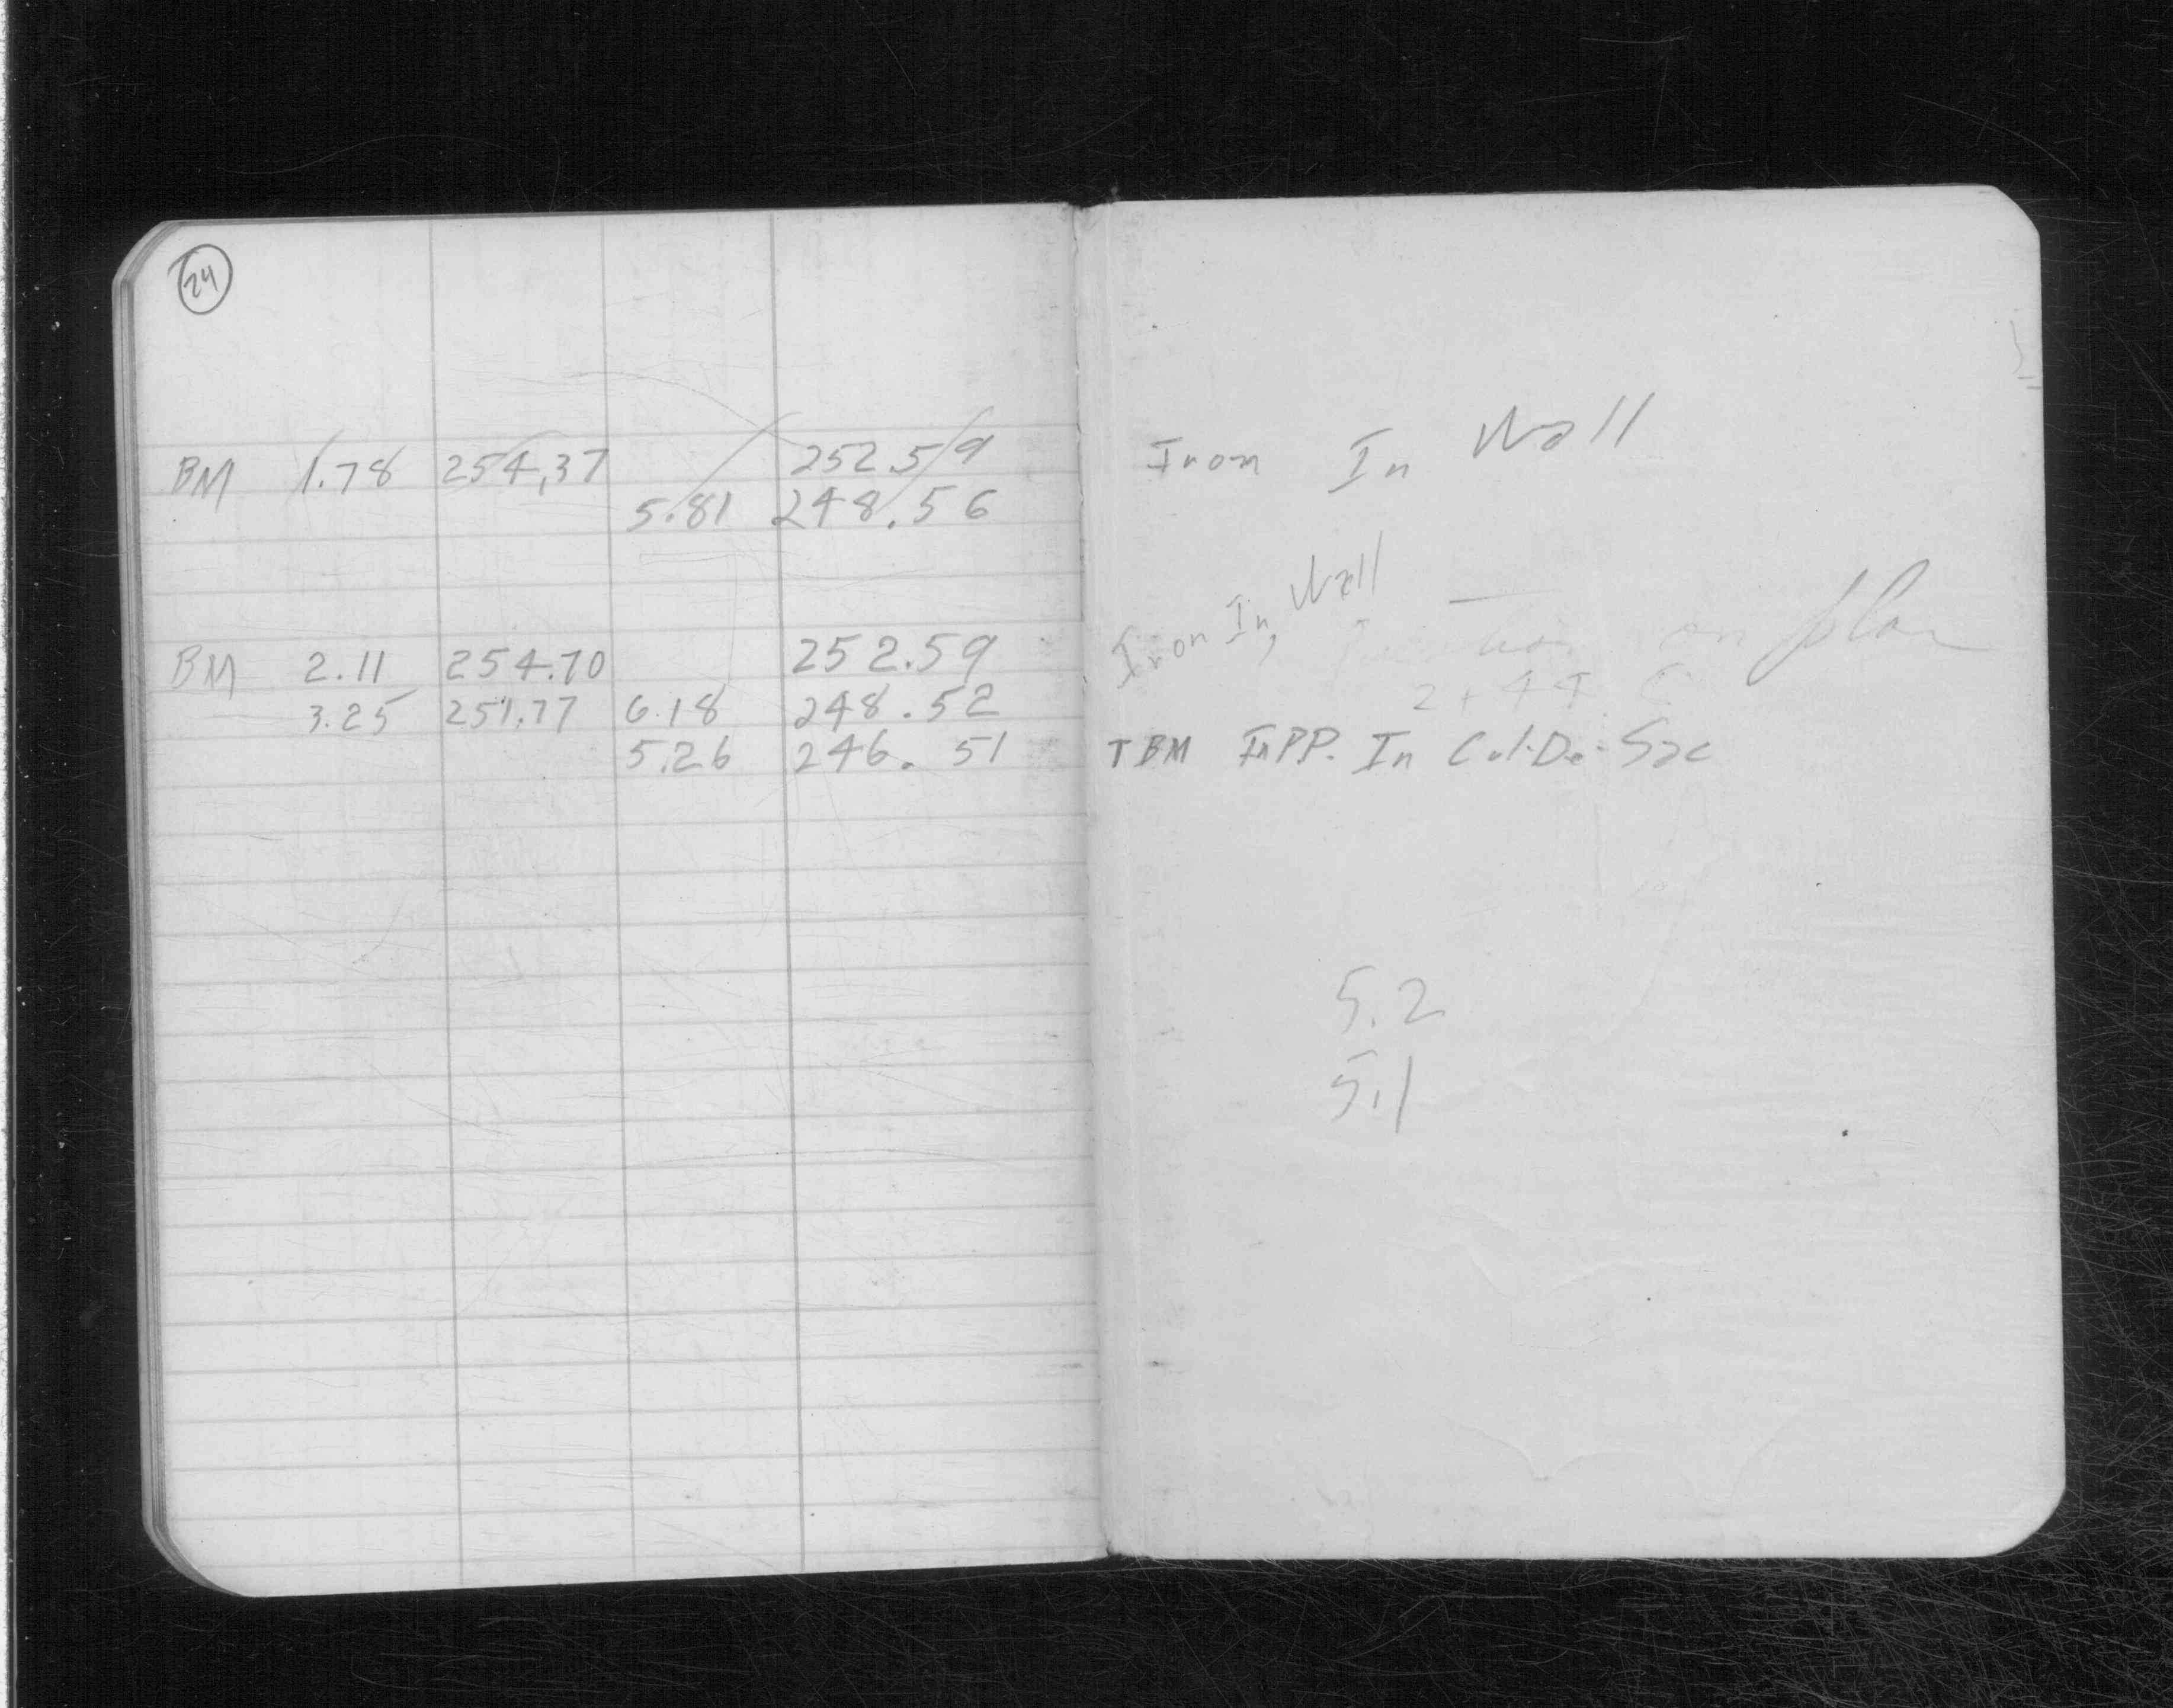 24
BM 1.78 254.37 252.59
5.81 248.56
BM 2.11 254.70 252.59
3.25 251.77 6.18 248.52
5.26 246.51
Iron In Wall
Iron In, Wall
on plan
2+44
TBM In PP. In Cul-De-Sac
5.2
5.1